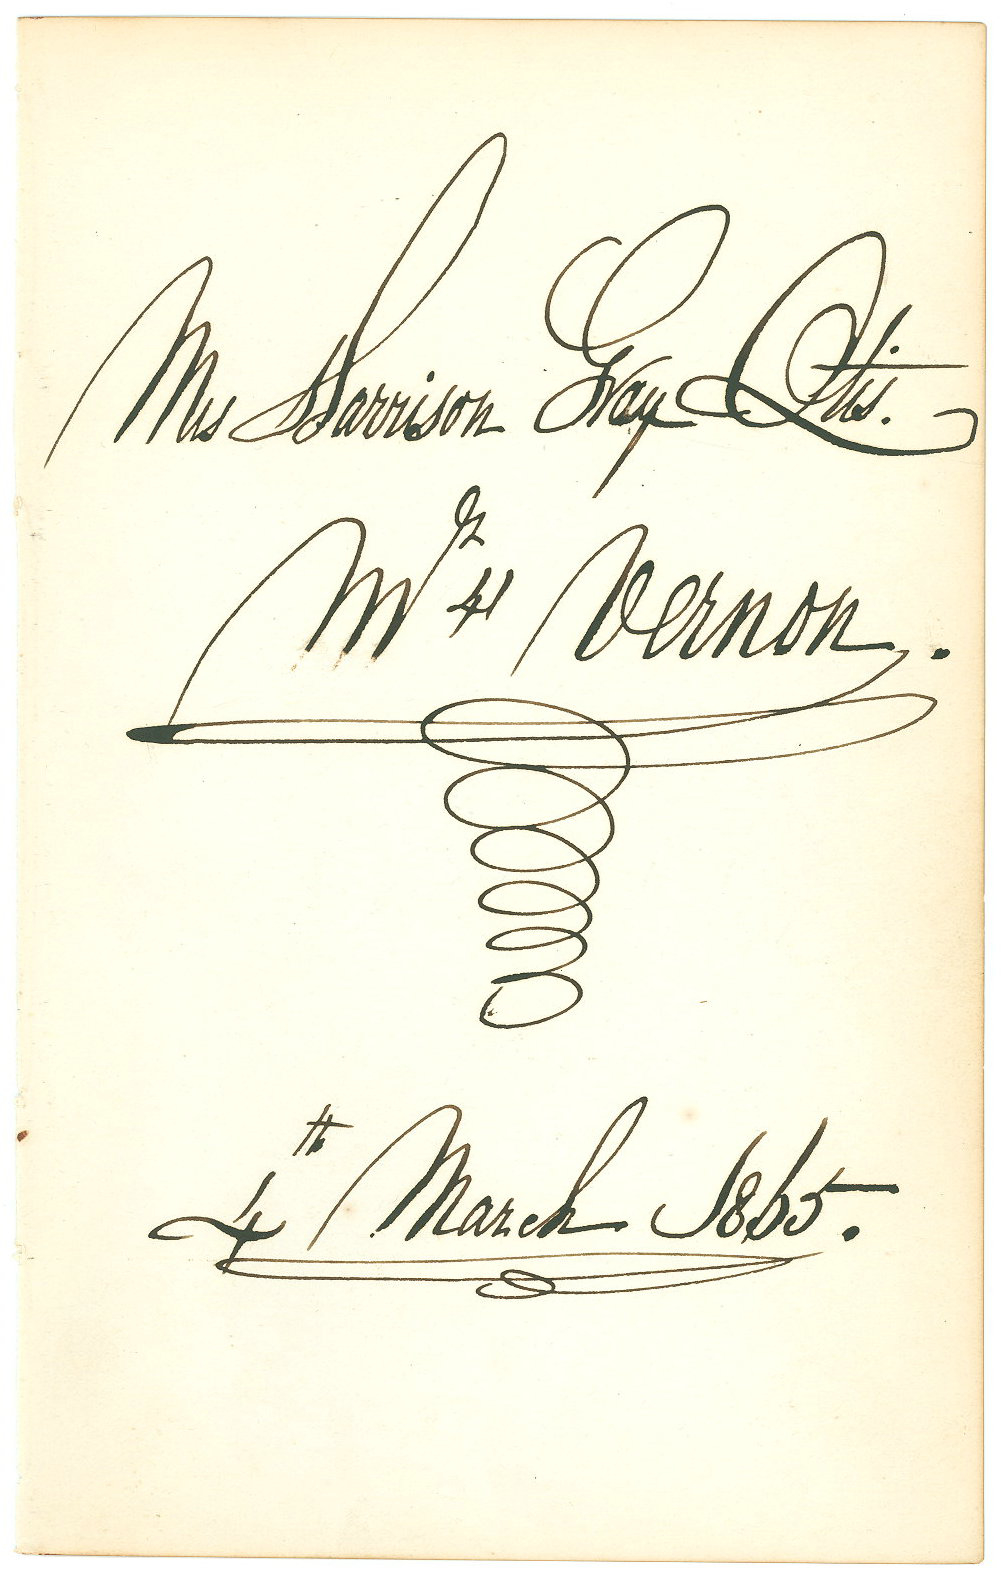 Mrs Harrison Gray Otis.
Mt 41 Vernon.
4th March 1865.